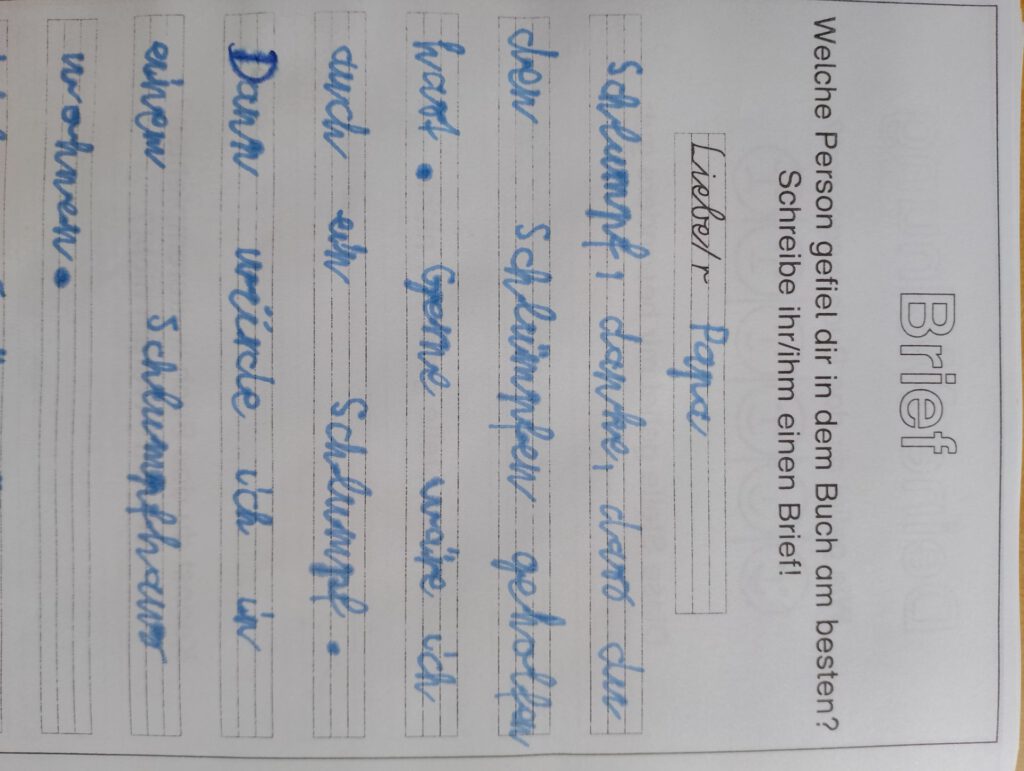 Brief
Welche Person gefiel dir in dem Buch am besten?
Schreibe ihr/ihm einen Brief!
Liebe/r Papa
Schlumpf, danke, dass du
den Schlümpfen geholfen
hast. Gerne wäre ich
auch ein Schlumpf.
Dann würde ich in
einem Schlumpfhaus
wohnen.